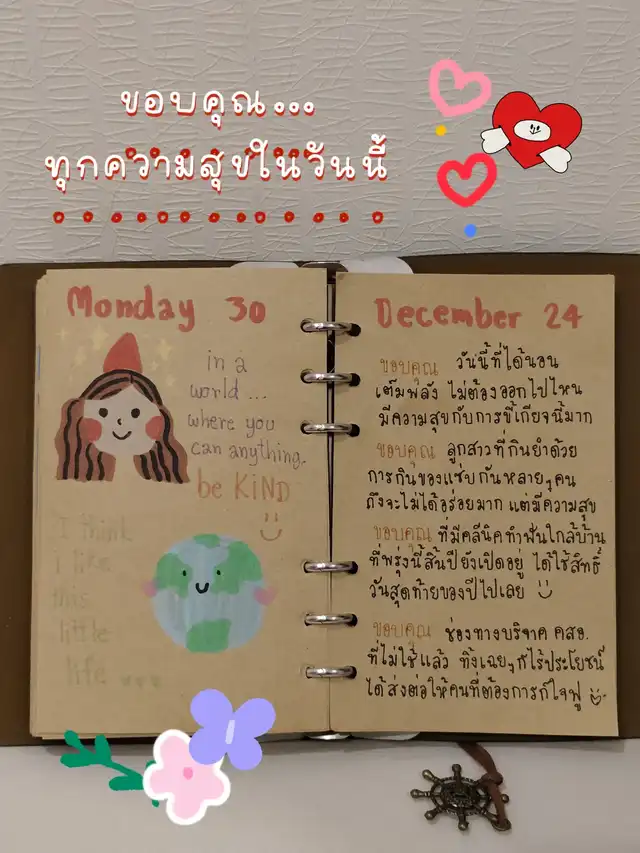 ขอบคุณ...
ทุกความสุขในวันนี้
Monday 30
in a
world ...
where you
can anything.
be KiND
I think
i like
this
little
life ...
December 24
ขอบคุณ วันนี้ที่ได้นอน
เต็มพลัง ไม่ต้องออกไปไหน
มีความสุขกับการขี้เกียจนี้มาก
ขอบคุณ ลูกสาวที่กินยำด้วย
การกินของแซ่บกันหลายๆคน
ถึงจะไม่ได้อร่อยมาก แต่มีความสุข
ขอบคุณ ที่มีคลีนิคทำฟันใกล้บ้าน
ที่พรุ่งนี้สิ้นปียังเปิดอยู่ ได้ใช้สิทธิ์
วันสุดท้ายของปีไปเลย
ขอบคุณ ช่องทางบริจาค คสอ.
ที่ไม่ใช้แล้ว ทิ้งเฉยๆก็ไร้ประโยชน์
ได้ส่งต่อให้คนที่ต้องการก็ใจฟู